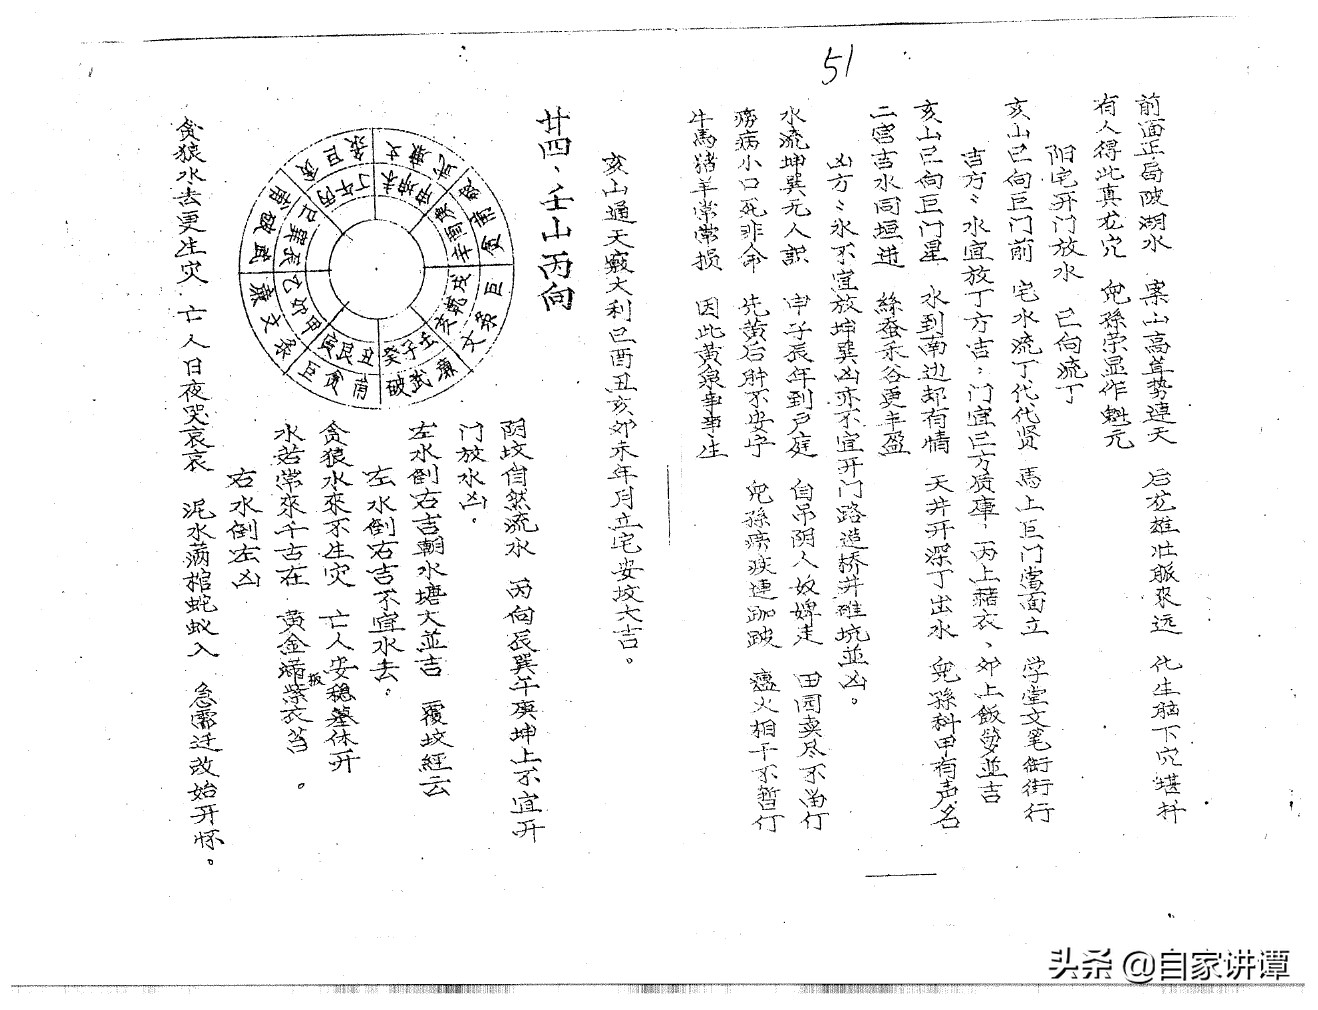 51
前面正局陂湖水 案山高耸势連天 后龙雄壮脈來远 化生脑下穴堪扦
有人得此真龙穴 兒孫荣显作魁元
阳宅开门放水 巳向流丁
亥山巳向巨门前 宅水流丁代代贤 馬上巨门當面立 学堂文笔街街行
吉方：水宜放丁方吉，门宜三方庚庫，丙上赭衣、卯上飯箩並吉
亥山巳向巨门星 水到南边却有情 天井开深丁出水 兒孫科甲有声名
二宮吉水同垣进 絲蚕禾谷更丰盈
凶方：水不宜放坤巽凶亦不宜开门路造桥井碓坑並凶。
水流坤巽无人識 申子辰年到戶庭 自吊阴人奴婢走 田园卖尽不留仃
痨病小口死非命 先黄后肿不安宁 兒孫痍疾連跏跛 瘟火相干不暂仃
牛馬猪羊常常损 因此黄泉事事生
亥山通天竅大利巳酉丑亥卯未年月立宅安坟大吉。
廿四、壬山丙向
阴坟自然流水 丙向辰巽午庚坤上不宜开
门放水凶。
左水倒右吉朝水塘大並吉 覆坟經云
左水倒右吉不宜水去。
貪狼水來不生灾 亡人安稳墓休开
水若常來千古在 黄金 板紫衣
右水倒左凶
貪狼水去更生灾 亡人日夜哭哀哀 泥水满棺蛇蚁入 急需迁改始开怀。
丁午丙
未坤申
庚酉辛
戌乾亥
壬子癸
丑艮寅
甲卯乙
辰巽巳
文廉武
破武廉
巨貪甫
头条 @自家讲谭